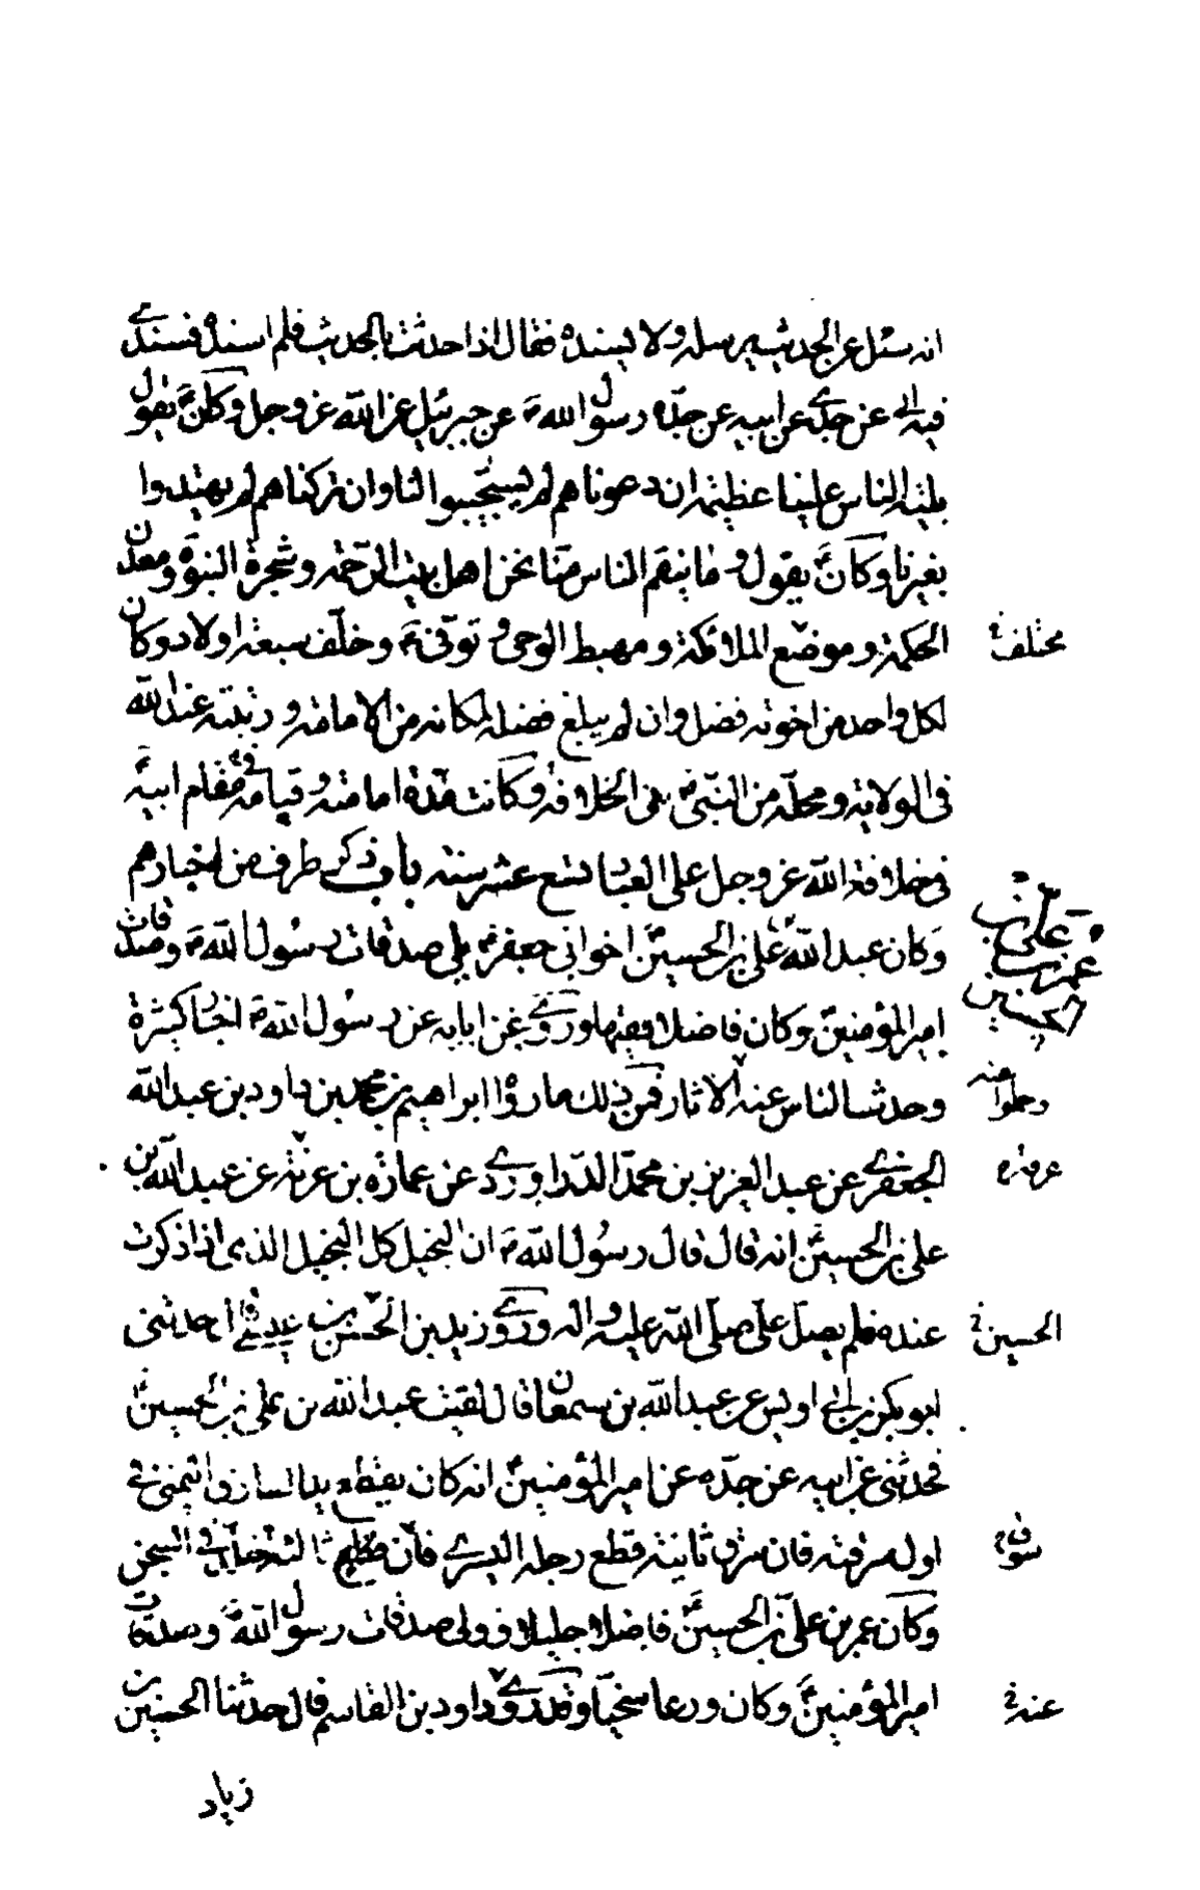 انه سئل عن الحديث يرسله ولا يسنده فقال اذا حدثت بالحديث فلم اسنده فسندي
فيه ابي عن جدي عن ابيه عن جده رسول الله ص عن جبرئيل عن الله عز وجل وكان ع يقول
بلية الناس علينا عظيمة ان دعوناهم لم يستجيبوا لنا وان تركناهم لم يهتدوا
بغيرنا وكان ع يقول ما ينقم الناس منا نحن اهل بيت الرحمة وشجرة النبوة ومعدن
الحكمة وموضع الملائكة ومهبط الوحي وتوفي ع وخلف سبعة اولاد وكان
مختلف
لكل واحد من اخوته فضل وان لم يبلغ فضله لمكانه من الامامة ورتبته عند الله
في الولاية ومحله من النبي ص في الخلافة وكانت مدة امامته وقيامه مقام ابيه ع
في خلافة الله عز وجل على العباد تسع عشر سنة باب ذكر طرف من اخبارهم
وكان عبد الله بن علي بن الحسين ع اخو ابي جعفر ع يلي صدقات رسول الله ص وصدقات
علي بن
عمر بن
الحسين
امير المؤمنين ع وكان فاضلا فقيها وروى عن ابائه عن رسول الله ص اخبارا كثيرة
وحدث الناس عنه الاثار فمن ذلك ما رواه ابراهيم بن محمد بن داود بن عبد الله
وحملوا عنه
الجعفري عن عبد العزيز بن محمد الدراوردي عن عمارة بن غزية عن عبد الله بن
علي بن الحسين ع انه قال قال رسول الله ص ان البخيل كل البخيل الذي اذا ذكرت
عنده فلم يصل علي صلى الله عليه واله وروى زيد بن الحسن بن عيسى قال حدثني
الحسين
ابو بكر بن ابي اويس عن عبد الله بن سمعان قال لقيت عبد الله بن علي بن الحسين ع
فحدثني عن ابيه عن جده عن امير المؤمنين ع انه كان يقطع يد السارق اليمنى في
اول سرقته فان سرق ثانية قطع رجله اليسرى فان سرق ثالثة خلده في السجن
سرق
وكان عمر بن علي بن الحسين ع فاضلا جليلا وولي صدقات رسول الله ص وصدقات
امير المؤمنين ع وكان ورعا سخيا وقد روى داود بن القاسم قال حدثنا الحسين بن
عنه
زياد